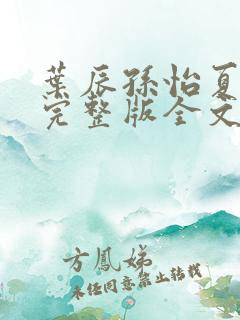 葉辰孫怡夏
完整版全文
方鳳娣
未經同意禁止轉載